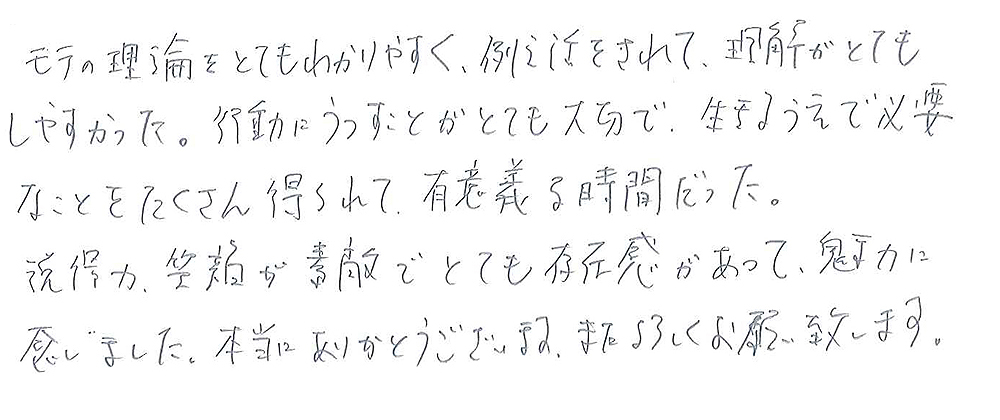 モテの理論をとてもわかりやすく、例え話をされて、理解がとても
しやすかった。行動にうつすことがとても大切で、生きるうえで必要
なことをたくさん得られて、有意義る時間だった。
説得力、笑顔が素敵でとても存在感があって、魅力に
感じました。本当にありがとうございます。またよろしくお願い致します。